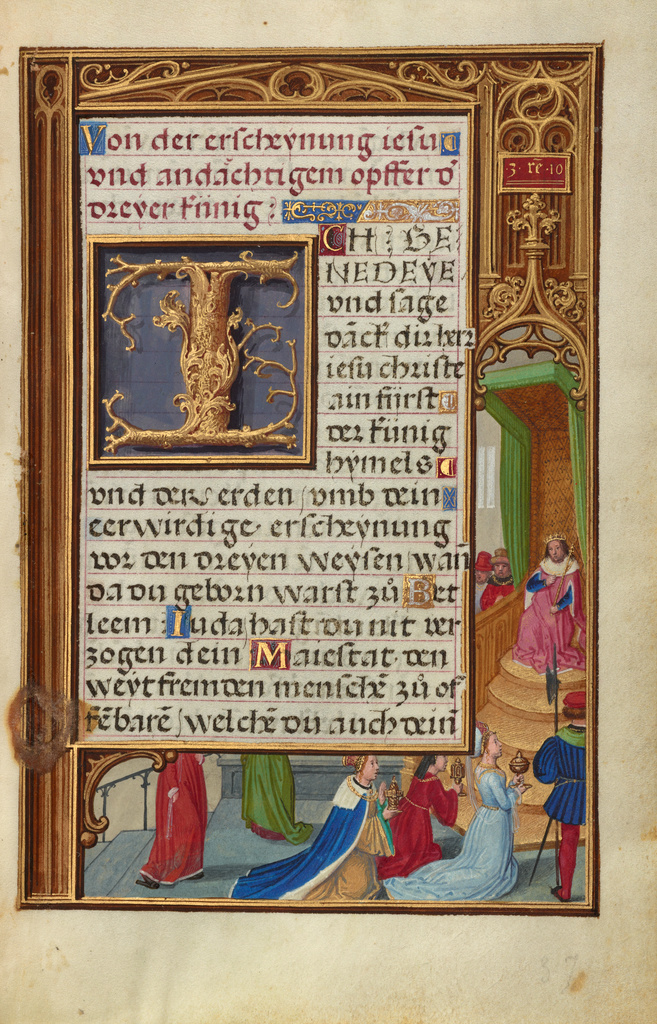 Von der erscheynung iesu
vnd andächtigem opffer d̕
dreyer künig :
3 · re͂ · 10
ICH : BE
NEDEYE
vnd sage
däck dir herr
iesu christe
ain fürst
der künig
hymels
vnd der erden / vmb dein
eerwirdige · erscheynung
vor den dreyen weysen / wan̄
da du geborn warst zů Bet
leem : Iuda hast du nit ver
zogen dein Maiestat · den
weyt fremden mensche͂ zů of
fe͂bare͂ / welche͂ du auch dein
37